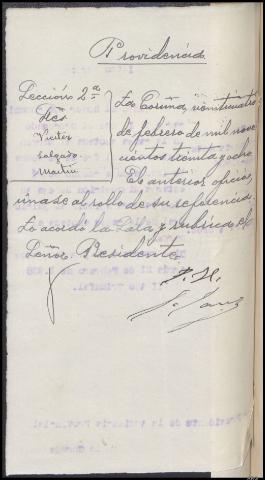 Providencia
Sección 2ª
Sres
Vieitez
Salgado
Martin
La Coruña, veinticuatro
de febrero de mil nove
cientos treinta y ocho.
El anterior oficio,
únase al rollo de su referencia.
Lo acordó la Sala y rubrica el
Señor Presidente